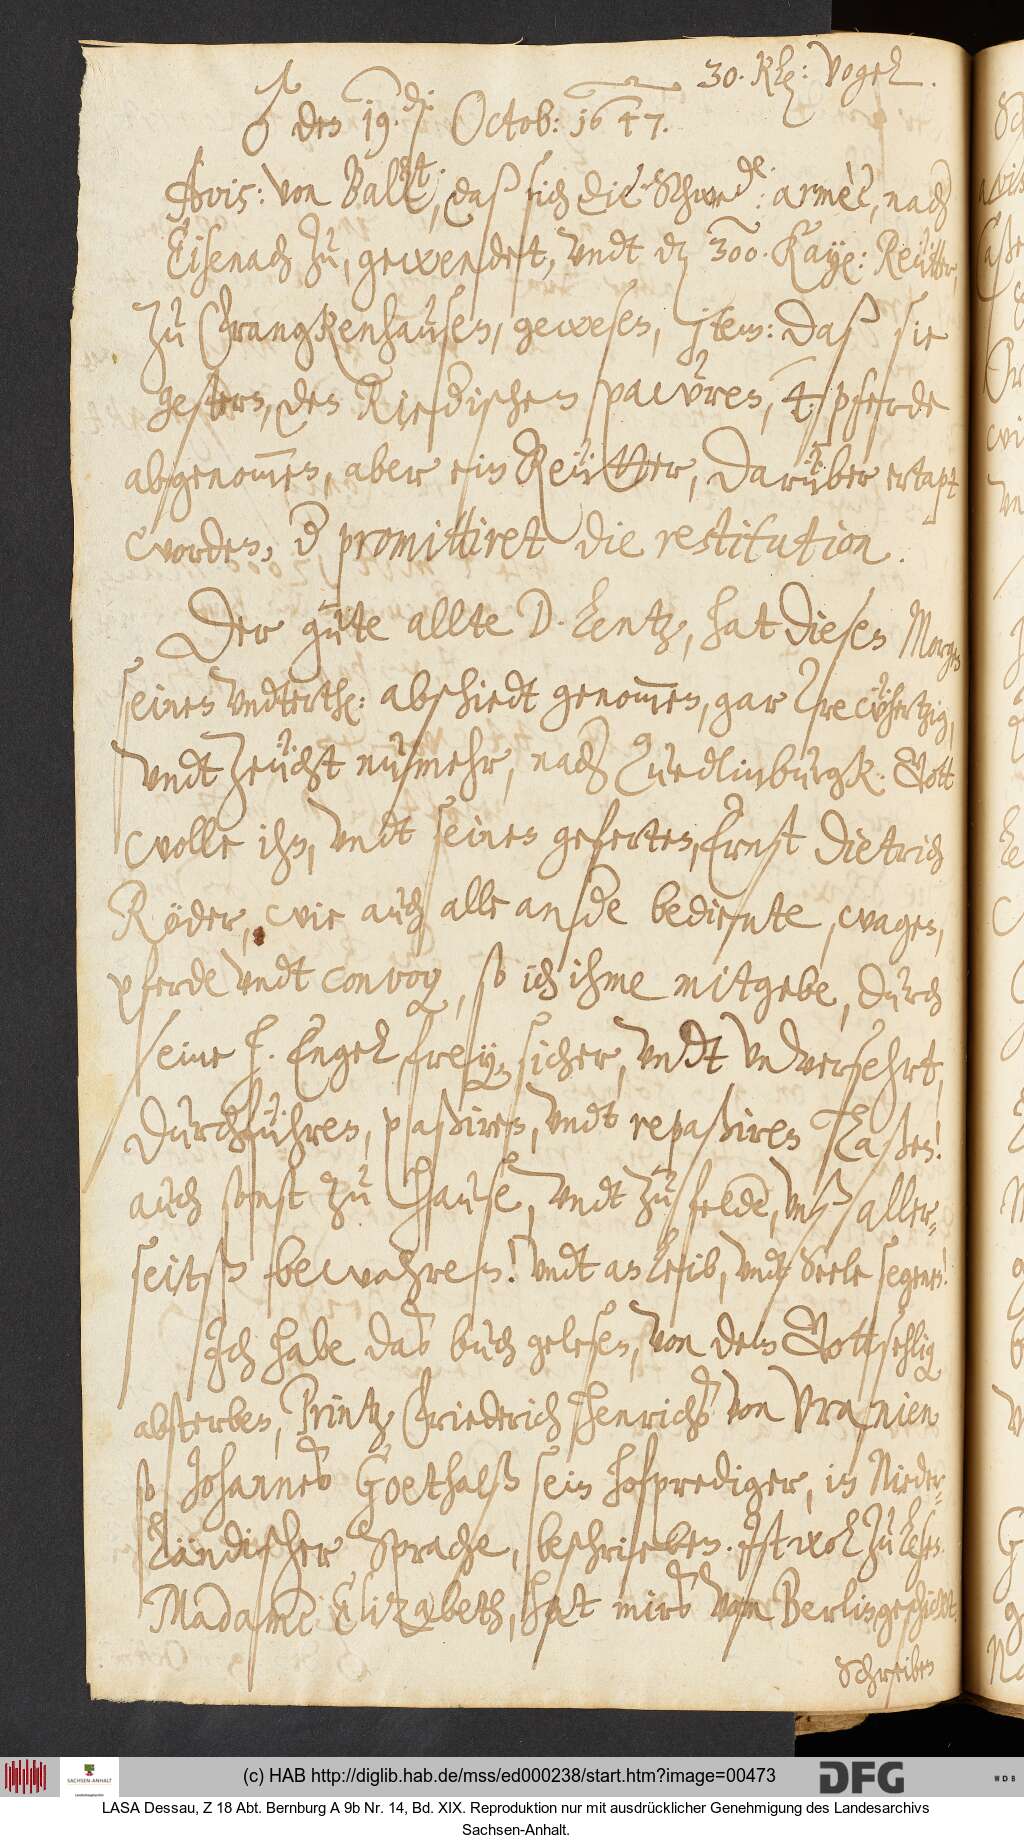 30. Kl: Vogel.
♂ den 19. di: Octob: 1647.
Avis: von Ballst: daß sich die Schwede: armèe, nach
Eisenach zu, gewendet, undt dz 300. Kayß: Reütter,
zu Franckenhausen, gewesen, jtem: daß sie
gestern, den Riederischen pawren, 4: pferde
abgenommen, aber ein Reütter, darüber ertapt
worden, promittiret die restitution.
Der güte allte D. Lentz, hat diesen Morgen
seinen undterth: abschiedt genommen, gar trewhertzig,
undt zeücht nunmehr, nach Quedlinburgk. Gott
wolle ihn, undt seinen geferten, Ernst Dietrich
Röder, wie auch alle andere bediente, wagen,
pferde undt convoy, so ich ihme mitgebe, durch
seine h. Engel frey, sicher, undt unversehrt,
durchführen, paßiren, undt repaßiren laßen!
auch sonst zu hause, undt zu felde, unß aller-
seitß bewahren! undt an Leib, undt Seele segenen!
Ich habe das buch gelesen, von dem Gottsehlig
absterben, Printz Friederich Henrichs von Uranien
so Johannes Goethalß sein hofprediger, in Nieder-
ländischer Sprache, beschrieben. Ist wol zu lesen.
Madame Elizabeth, hat mirs von Berlin geschickt.
Schreiben
(c) HAB http://diglib.hab.de/mss/ed000238/start.htm?image=00473
SACHSEN-ANHALT
DFG
WDB
LASA Dessau, Z 18 Abt. Bernburg A 9b Nr. 14, Bd. XIX. Reproduktion nur mit ausdrücklicher Genehmigung des Landesarchivs
Sachsen-Anhalt.